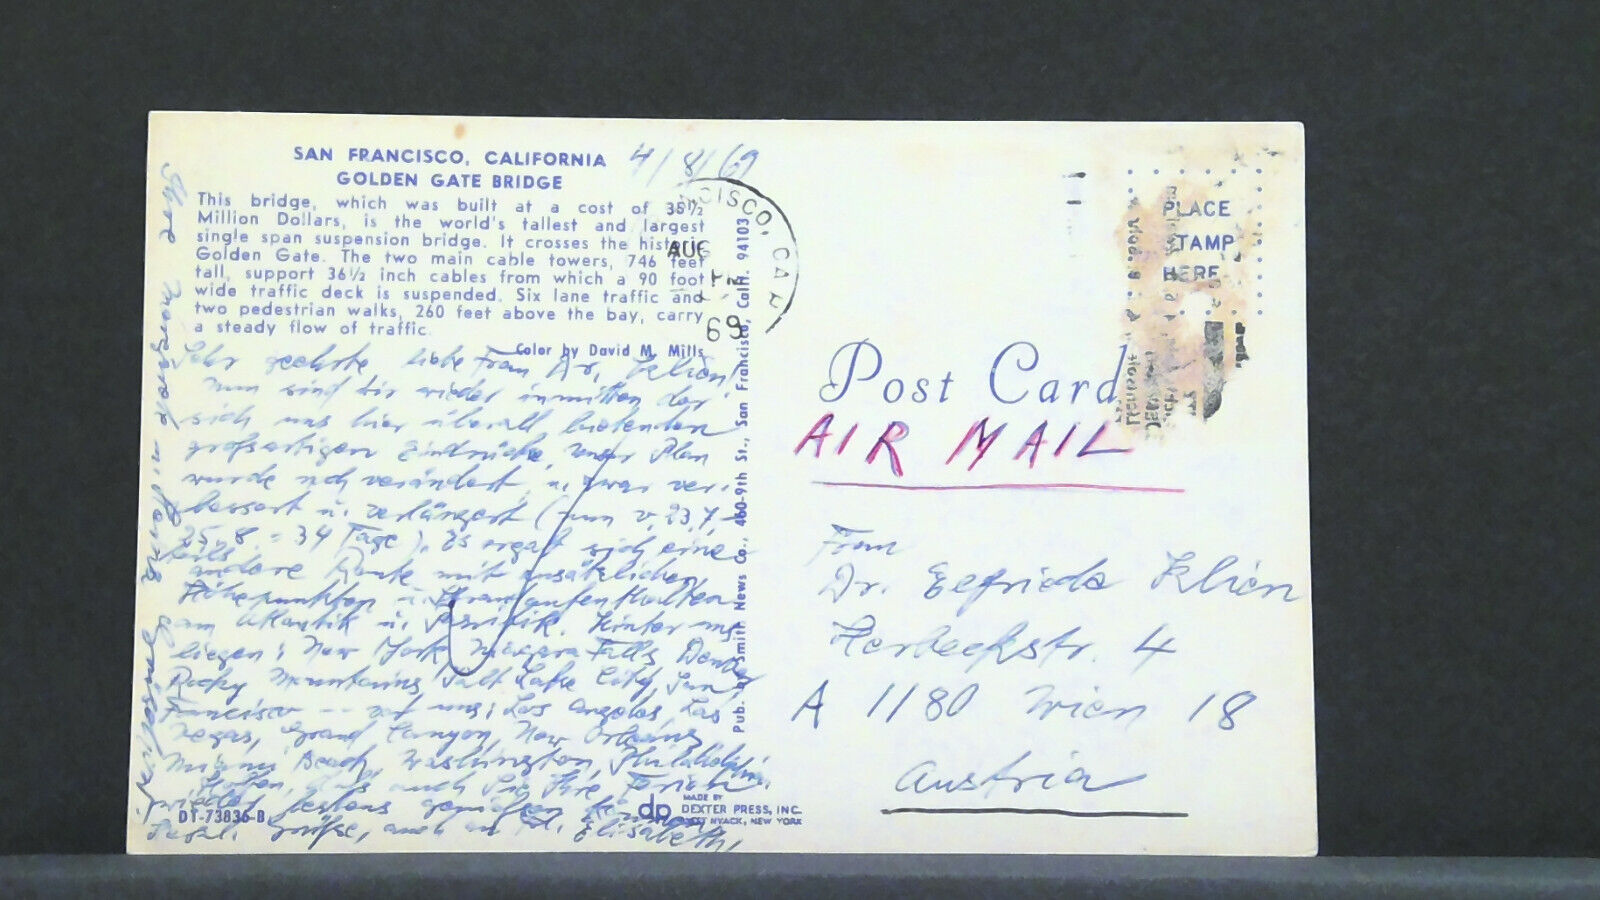 SAN FRANCISCO, CALIFORNIA
GOLDEN GATE BRIDGE
4/8/69
This bridge, which was built at a cost of 35½
Million Dollars, is the world's tallest and largest
single span suspension bridge. It crosses the historic
Golden Gate. The two main cable towers, 746 feet
tall, support 36½ inch cables from which a 90 foot
wide traffic deck is suspended. Six lane traffic and
two pedestrian walks, 260 feet above the bay, carry
a steady flow of traffic.
Color by David M. Mills
CISCO, CA
AUG
69
Sehr geehrte, liebe Frau Dr. Klien!
Nun sind wir wieder inmitten der
sich uns hier überall bietenden
großartigen Eindrücke, unser Plan
wurde noch verändert u. zwar ver-
bessert u. verlängert (nun v. 23.7.-
25.8. = 34 Tage). Es ergab sich eine
teils andere Route mit zusätzlichen
Höhepunkten u.
am Atlantik u. Pazifik. Hinter uns
liegen: New York, Niagara Falls, Denver
Rocky Mountains, Salt Lake City, San
Francisco -- vor uns: Los Angeles, Las
Vegas, Grand Canyon, New Orleans,
Miami Beach, Washington, Philadelphia.
Hoffen, daß auch Sie Ihre Ferien
wieder bestens genießen können
Grüße, auch an Elisabeth,
DT-73836-B
Pub. by Smith News Co., 460-9th St., San Francisco, Calif. 94103
dp
MADE BY
DEXTER PRESS, INC.
WEST NYACK, NEW YORK
PLACE
STAMP
HERE
Post Card
AIR MAIL
Frau
Dr. Elfriede Klien
Herbeckstr. 4
A 1180 Wien 18
Austria